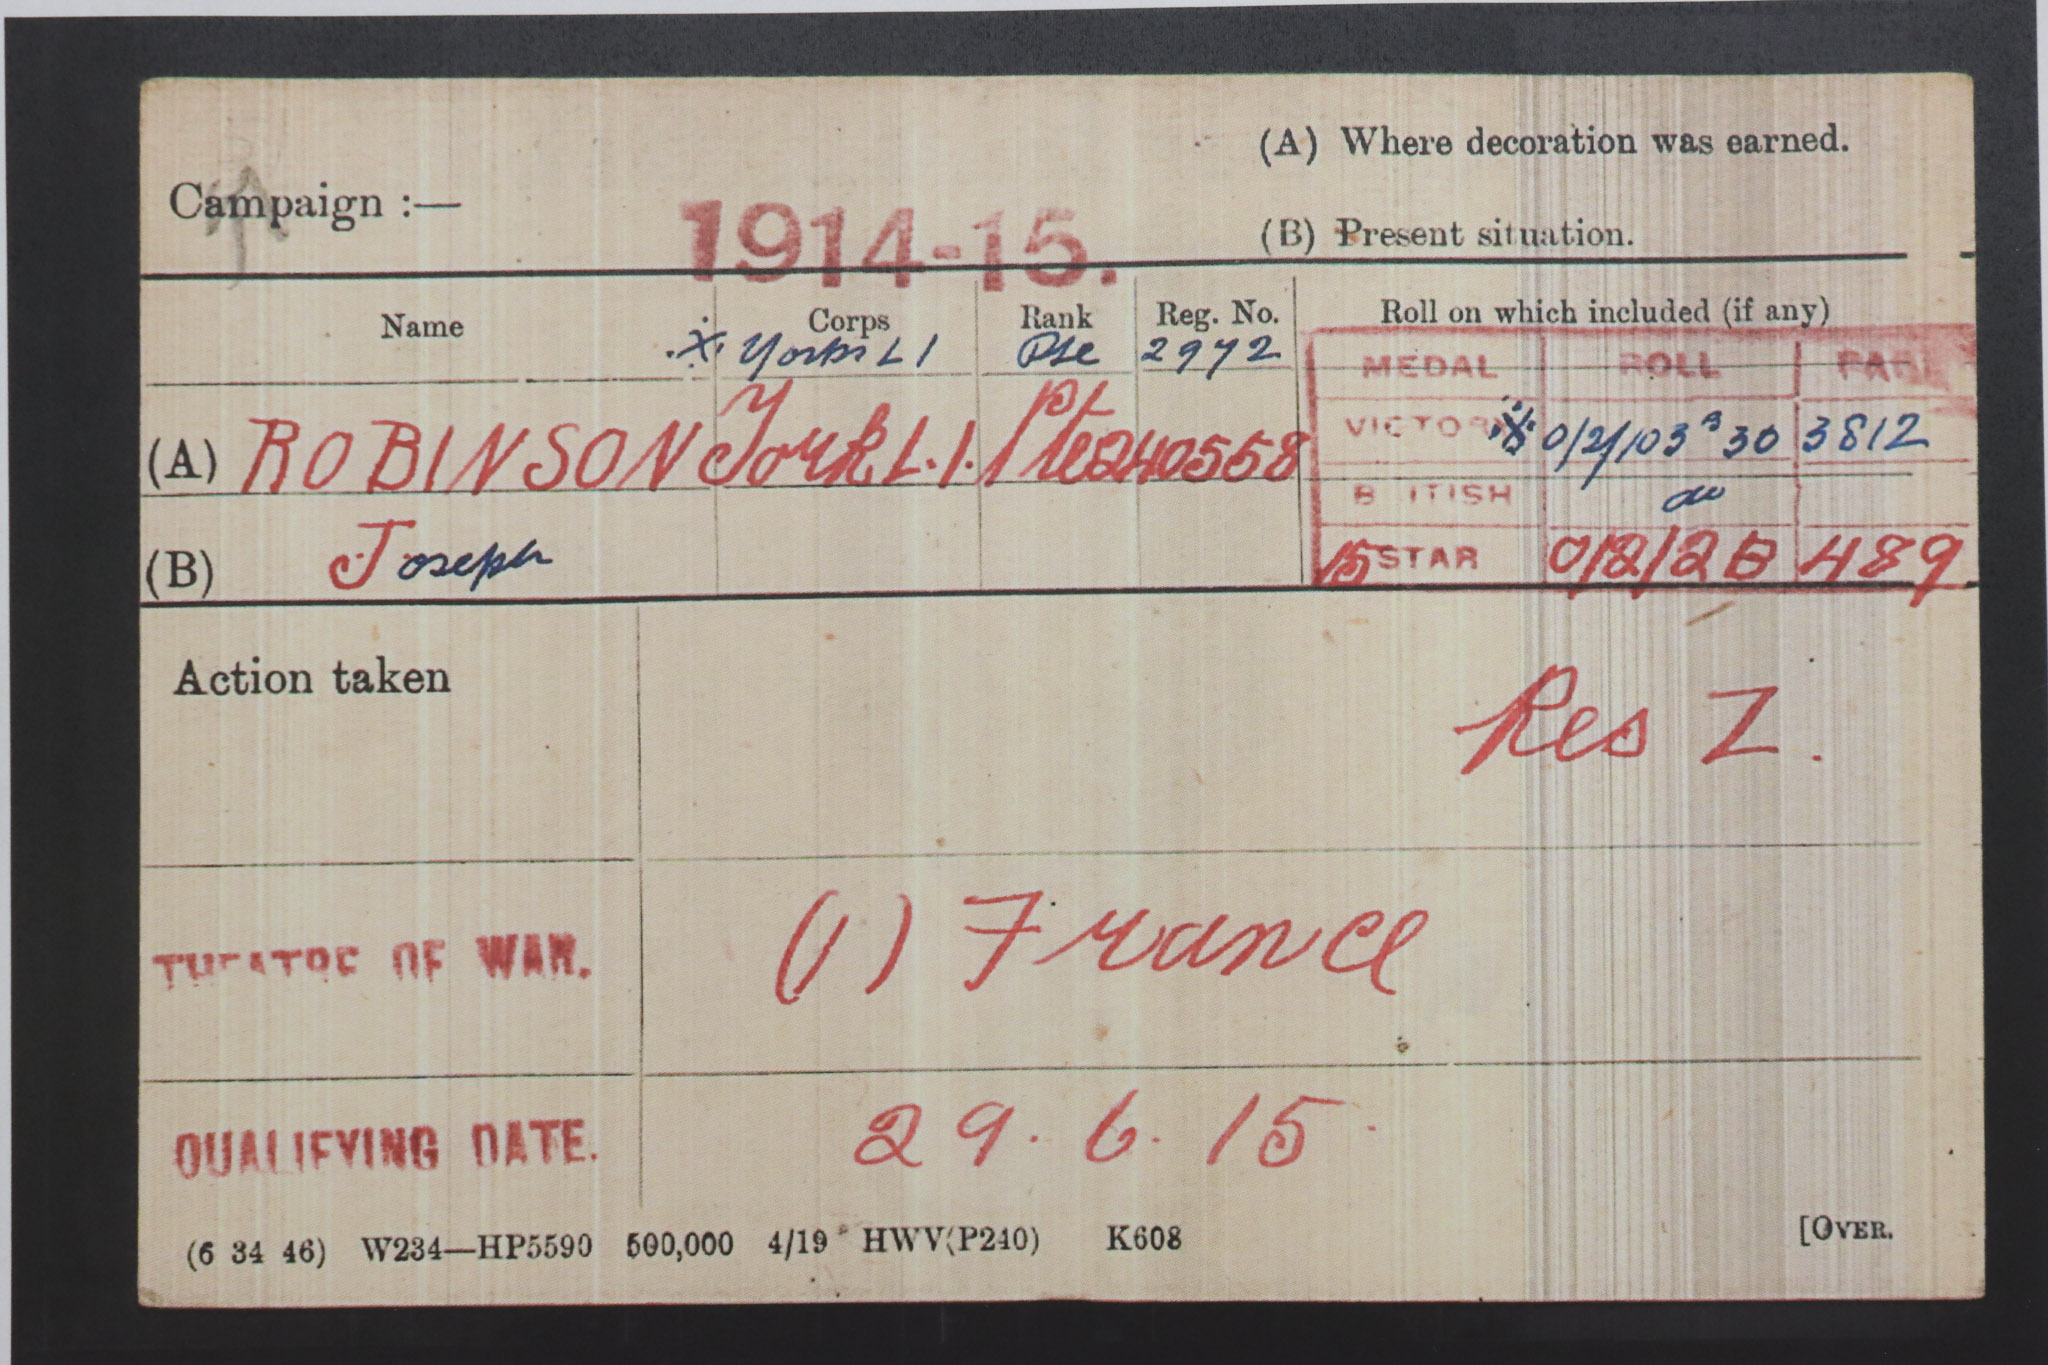 (A) Where decoration was earned.
Campaign :—
1914-15.
(B) Present situation.
Name Corps Rank Reg. No. Roll on which included (if any)
Yorks L I Pte 2972
MEDAL ROLL PAGE
(A) ROBINSON York L.I. Pte 240558
VICTORY 0/2/103 B 30 3812
BRITISH do
(B) Joseph
15 STAR 0/2/2B 489
Action taken
Res Z.
THEATRE OF WAR. (1) France
QUALIFYING DATE. 29.6.15.
(6 34 46) W234—HP5590 500,000 4/19 HWV(P240) K608 [OVER.